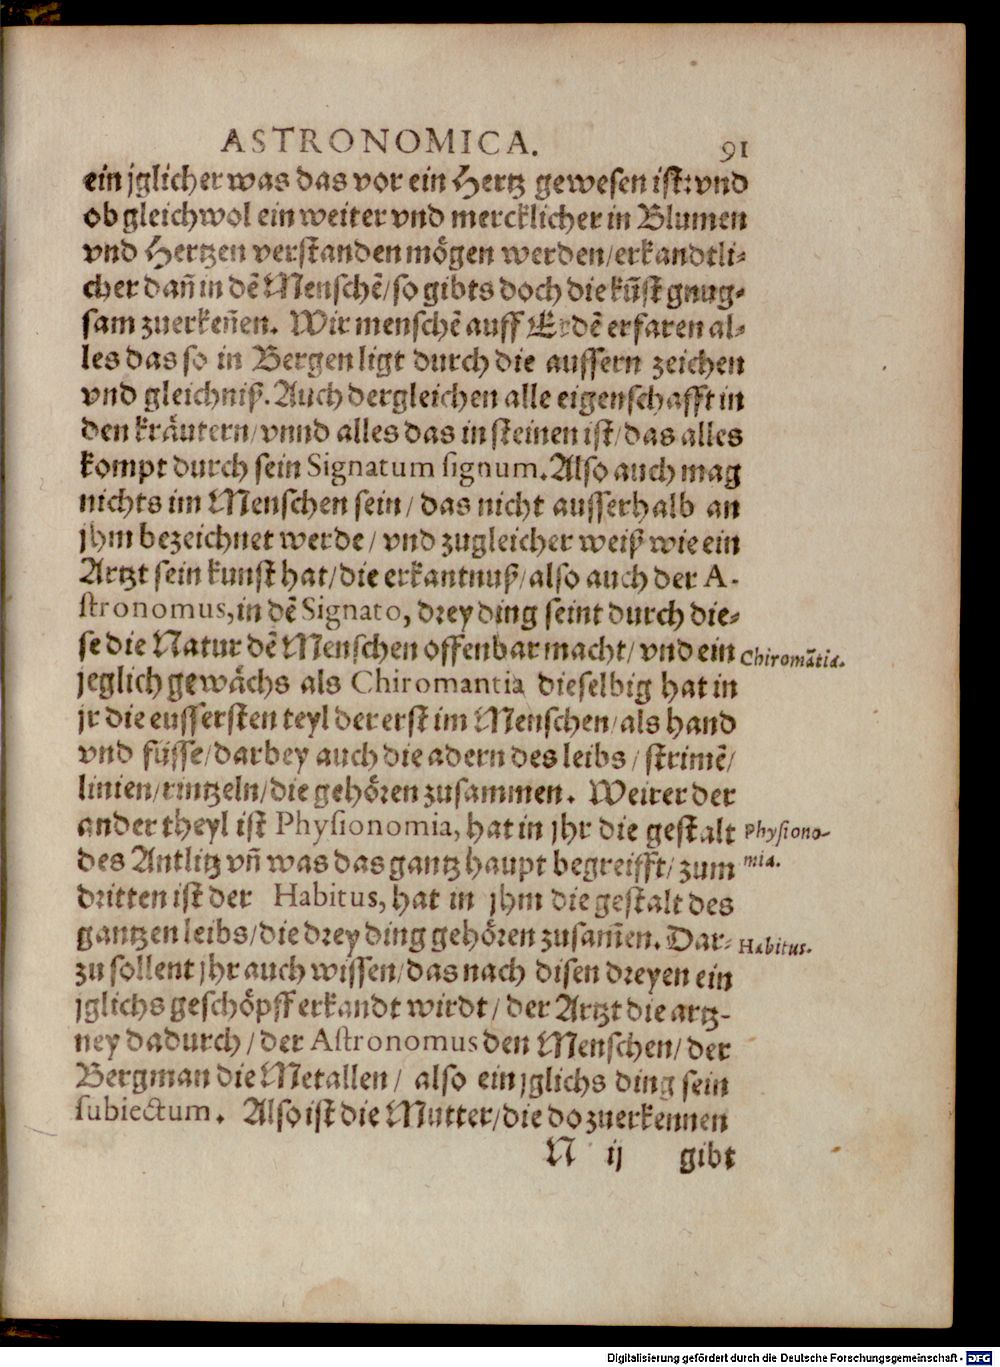 ASTRONOMICA. 91
ein jglicher was das vor ein Hertz gewesen ist: vnd
ob gleichwol ein weiter vnd mercklicher in Blumen
vnd Hertzen verstanden mögen werden/ erkandtli-
cher dañ in dẽ Menschẽ/ so gibts doch die kũst gnug-
sam zuerkeñen. Wir menschẽ auff Erdẽ erfaren al-
les das so in Bergen ligt durch die aussern zeichen
vnd gleichniß. Auch dergleichen alle eigenschafft in
den kräutern/ vnnd alles das in steinen ist/ das alles
kompt durch sein Signatum signum. Also auch mag
nichts im Menschen sein/ das nicht ausserhalb an
jhm bezeichnet werde/ vnd zugleicher weiß wie ein
Artzt sein kunst hat/ die erkantnuß/ also auch der A-
stronomus, in dẽ Signato, drey ding seint durch die-
se die Natur dẽ Menschen offenbar macht/ vnd ein
Chiromãtia.
jeglich gewächs als Chiromantia dieselbig hat in
jr die eussersten teyl der erst im Menschen/ als hand
vnd füsse/ darbey auch die adern des leibs/ strimẽ/
linien/ runtzeln/ die gehören zusammen. Weirer der
ander theyl ist Physionomia, hat in jhr die gestalt
Physiono-
mia.
des Antlitz vñ was das gantz haupt begreifft/ zum
dritten ist der Habitus, hat in jhm die gestalt des
gantzen leibs/ die drey ding gehören zusam̃en. Dar-
Habitus.
zu sollent jhr auch wissen/ das nach disen dreyen ein
jglichs geschöpff erkandt wirdt/ der Artzt die artz-
ney dadurch/ der Astronomus den Menschen/ der
Bergman die Metallen/ also ein jglichs ding sein
subiectum. Also ist die Mutter/ die do zuerkennen
N ij gibt
Digitalisierung gefördert durch die Deutsche Forschungsgemeinschaft - DFG